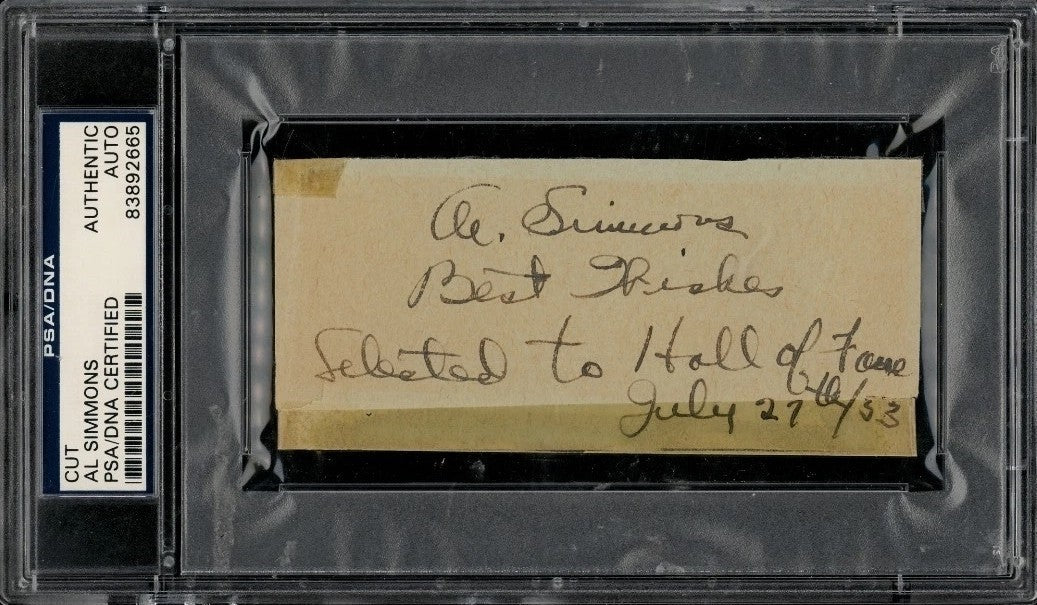 PSA/DNA
CUT
AL SIMMONS
PSA/DNA CERTIFIED
AUTHENTIC
AUTO
83892665
Al. Simmons
Best Wishes
Selected to Hall of Fame
July 27th/53